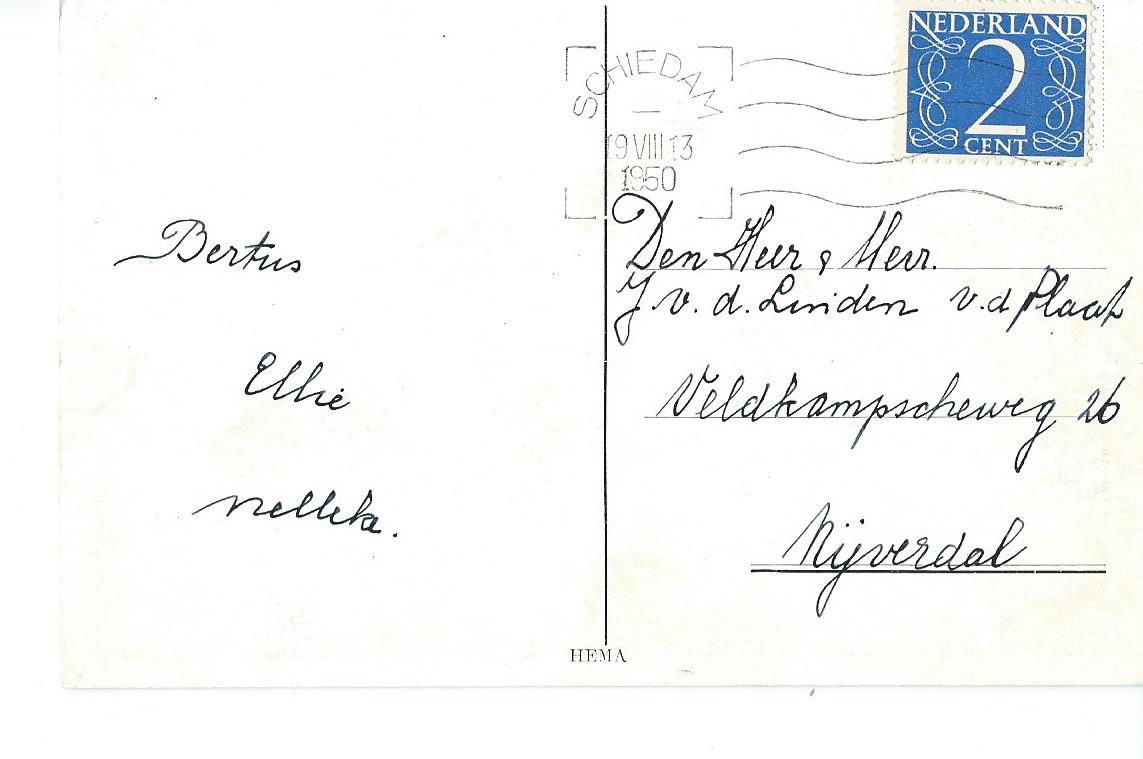 NEDERLAND
2
CENT
SCHIEDAM
19 VIII 13
1950
Bertus
Ellie
Nelleke.
Den Heer & Mevr.
J. v. d. Linden v.d Plaat
Veldkampscheweg 26
Nijverdal
HEMA